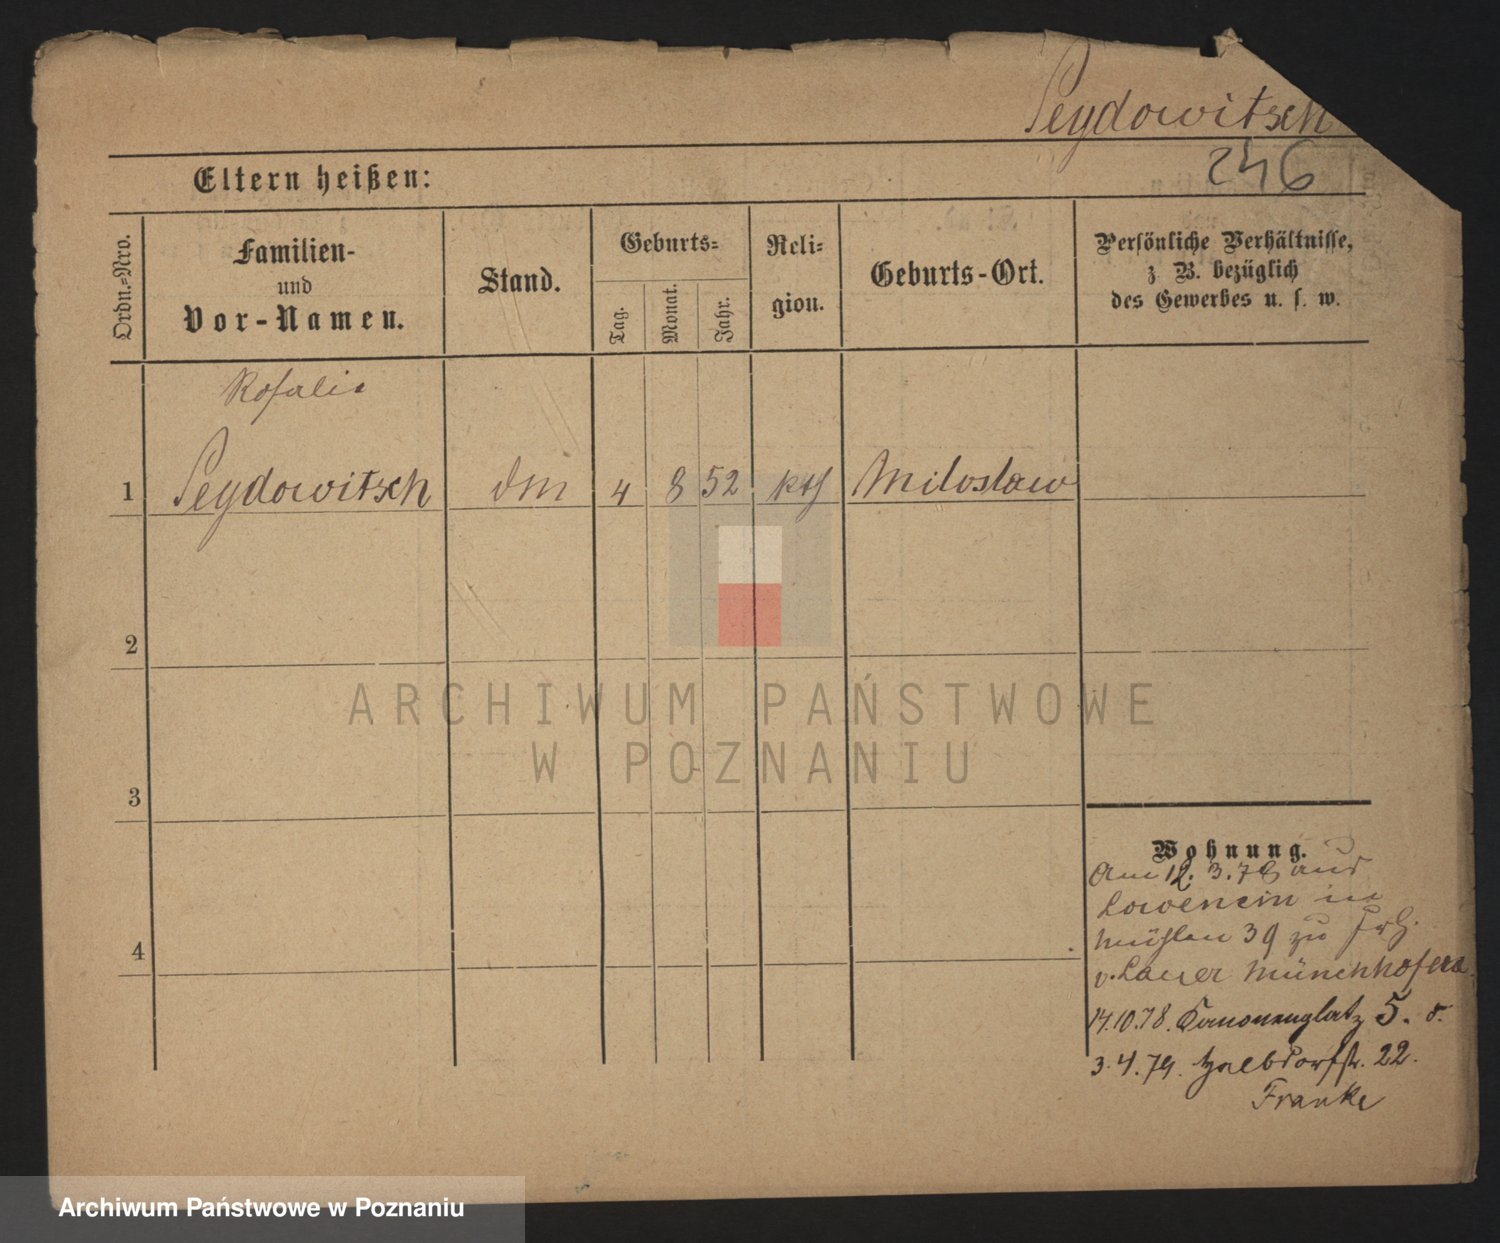 Seydowitsch
246
Eltern heißen:
Ordn.-Nro.
Familien-
und
Vor-Namen.
Stand.
Geburts-
Tag.
Monat.
Jahr.
Reli-
gion.
Geburts-Ort.
Persönliche Verhältnisse,
z. B. bezüglich
des Gewerbes u. s. w.
Rosalie
1 Seydowitsch dm 4 8 52 kth Miloslaw
2
3
4
ARCHIWUM PAŃSTWOWE
W POZNANIU
Wohnung.
Am 12. 3. 78 aus
Lowencin in
Mühlen 39 zu Frh.
v. Lauer Münchhofen
14.10.78. Kanonenplatz 5.
3.4.79. Halbdorfstr. 22.
Franke
Archiwum Państwowe w Poznaniu